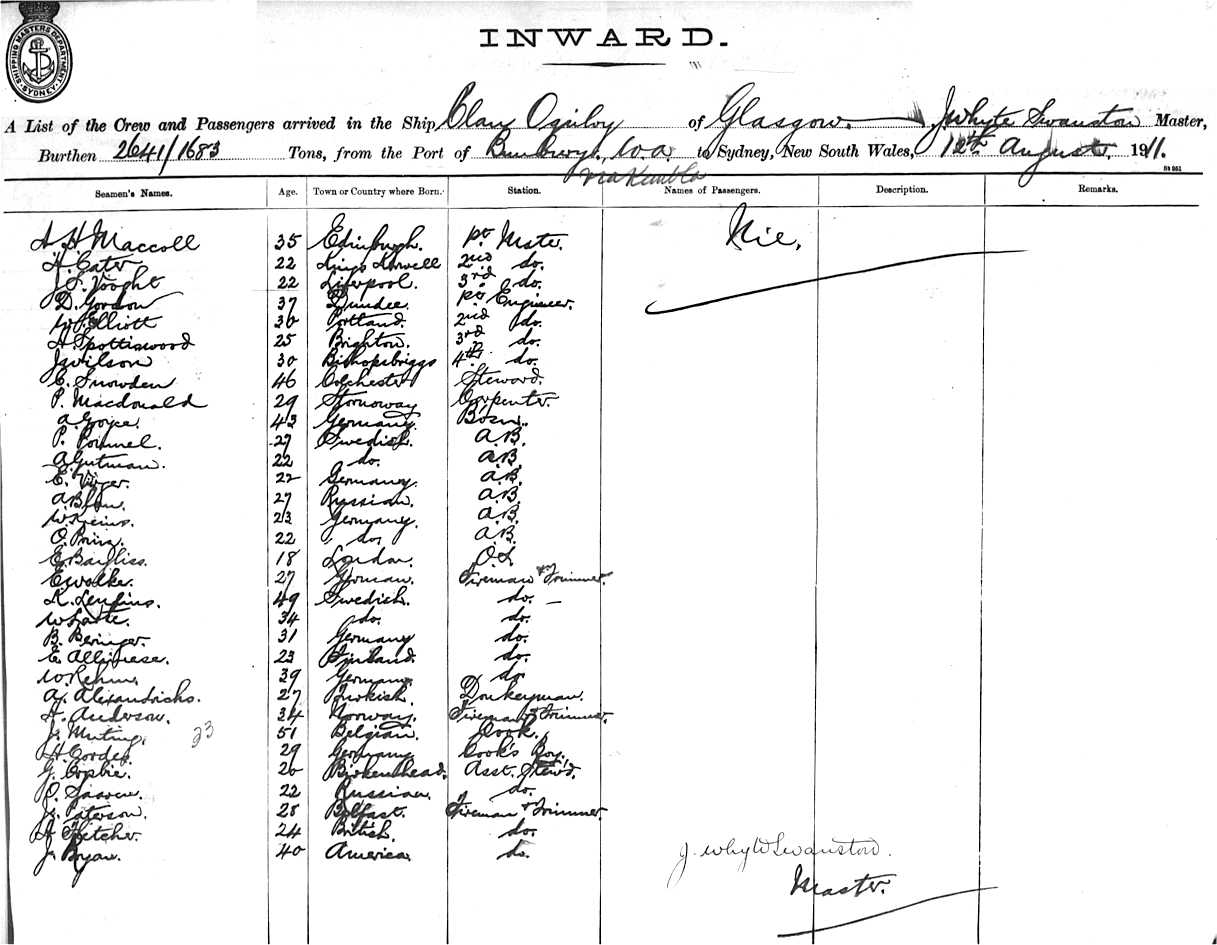 SHIPPING MASTERS DEPARTMENT SYDNEY
INWARD.
A List of the Crew and Passengers arrived in the Ship Clan Ogilby of Glasgow. J Whyte Swanston Master,
Burthen 2641/1683 Tons, from the Port of Bunbury, W.a. to Sydney, New South Wales, 12th August 1911.
via Kembla
Seamen's Names. Age. Town or Country where Born. Station. Names of Passengers. Description. Remarks.
Nil,
A H Maccoll 35 Edinburgh. Mate.
22 2nd do.
22 Liverpool. 3rd do.
D. Gordon 37 Dundee. Engineer.
W. Elliott 36 Portland. 2nd do.
A. Spottiswood 25 Brighton. 3rd do.
J Wilson 30 Bishopsbriggs 4th do.
C. Snowden 46 Colchester Steward.
P. Macdonald 29 Stornoway Carpenter.
43 Germany. Bosn.
27 Swedish. A.B.
A. Gutman. 22 do. A.B
22 Germany. A.B.
27 Russian. A.B.
23 Germany. A.B.
O. Prinz. 22 do, A.B.
18 London. O.S
E Walke. 27 German. Fireman & Trimmer.
49 Swedish. do. –
34 do. do.
B. Beringer. 31 Germany do.
23 Finland. do.
39 Germany. do
Alexandrichs. 27 Turkish. Donkeyman.
A. Anderson. 34 Norway. Fireman & Trimmer
51 Belgian. Cook.
23
H Cordes 29 Germany Cook's Boy,
26 Birkenhead. Asst. Stew'd.
22 Russian. do.
J. Paterson. 28 Belfast. Fireman & Trimmer.
24 British. do.
J. Bryan. 40 America. do.
J. Whyte Swanston.
Master.